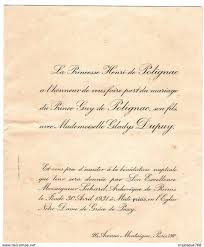 La Princesse Henri de Polignac
a l'honneur de vous faire part du mariage
du Prince Guy de Polignac, son fils
avec Mademoiselle Gladys Dupuy.
Et vous prie d'assister à la bénédiction nuptiale
qui leur sera donnée par Son Excellence
Monseigneur Suhard, Archevêque de Reims
le Jeudi 30 Avril 1931 à Midi précis, en l'Eglise
Notre-Dame de Grâce de Passy.
26 Avenue Montaigne, Paris